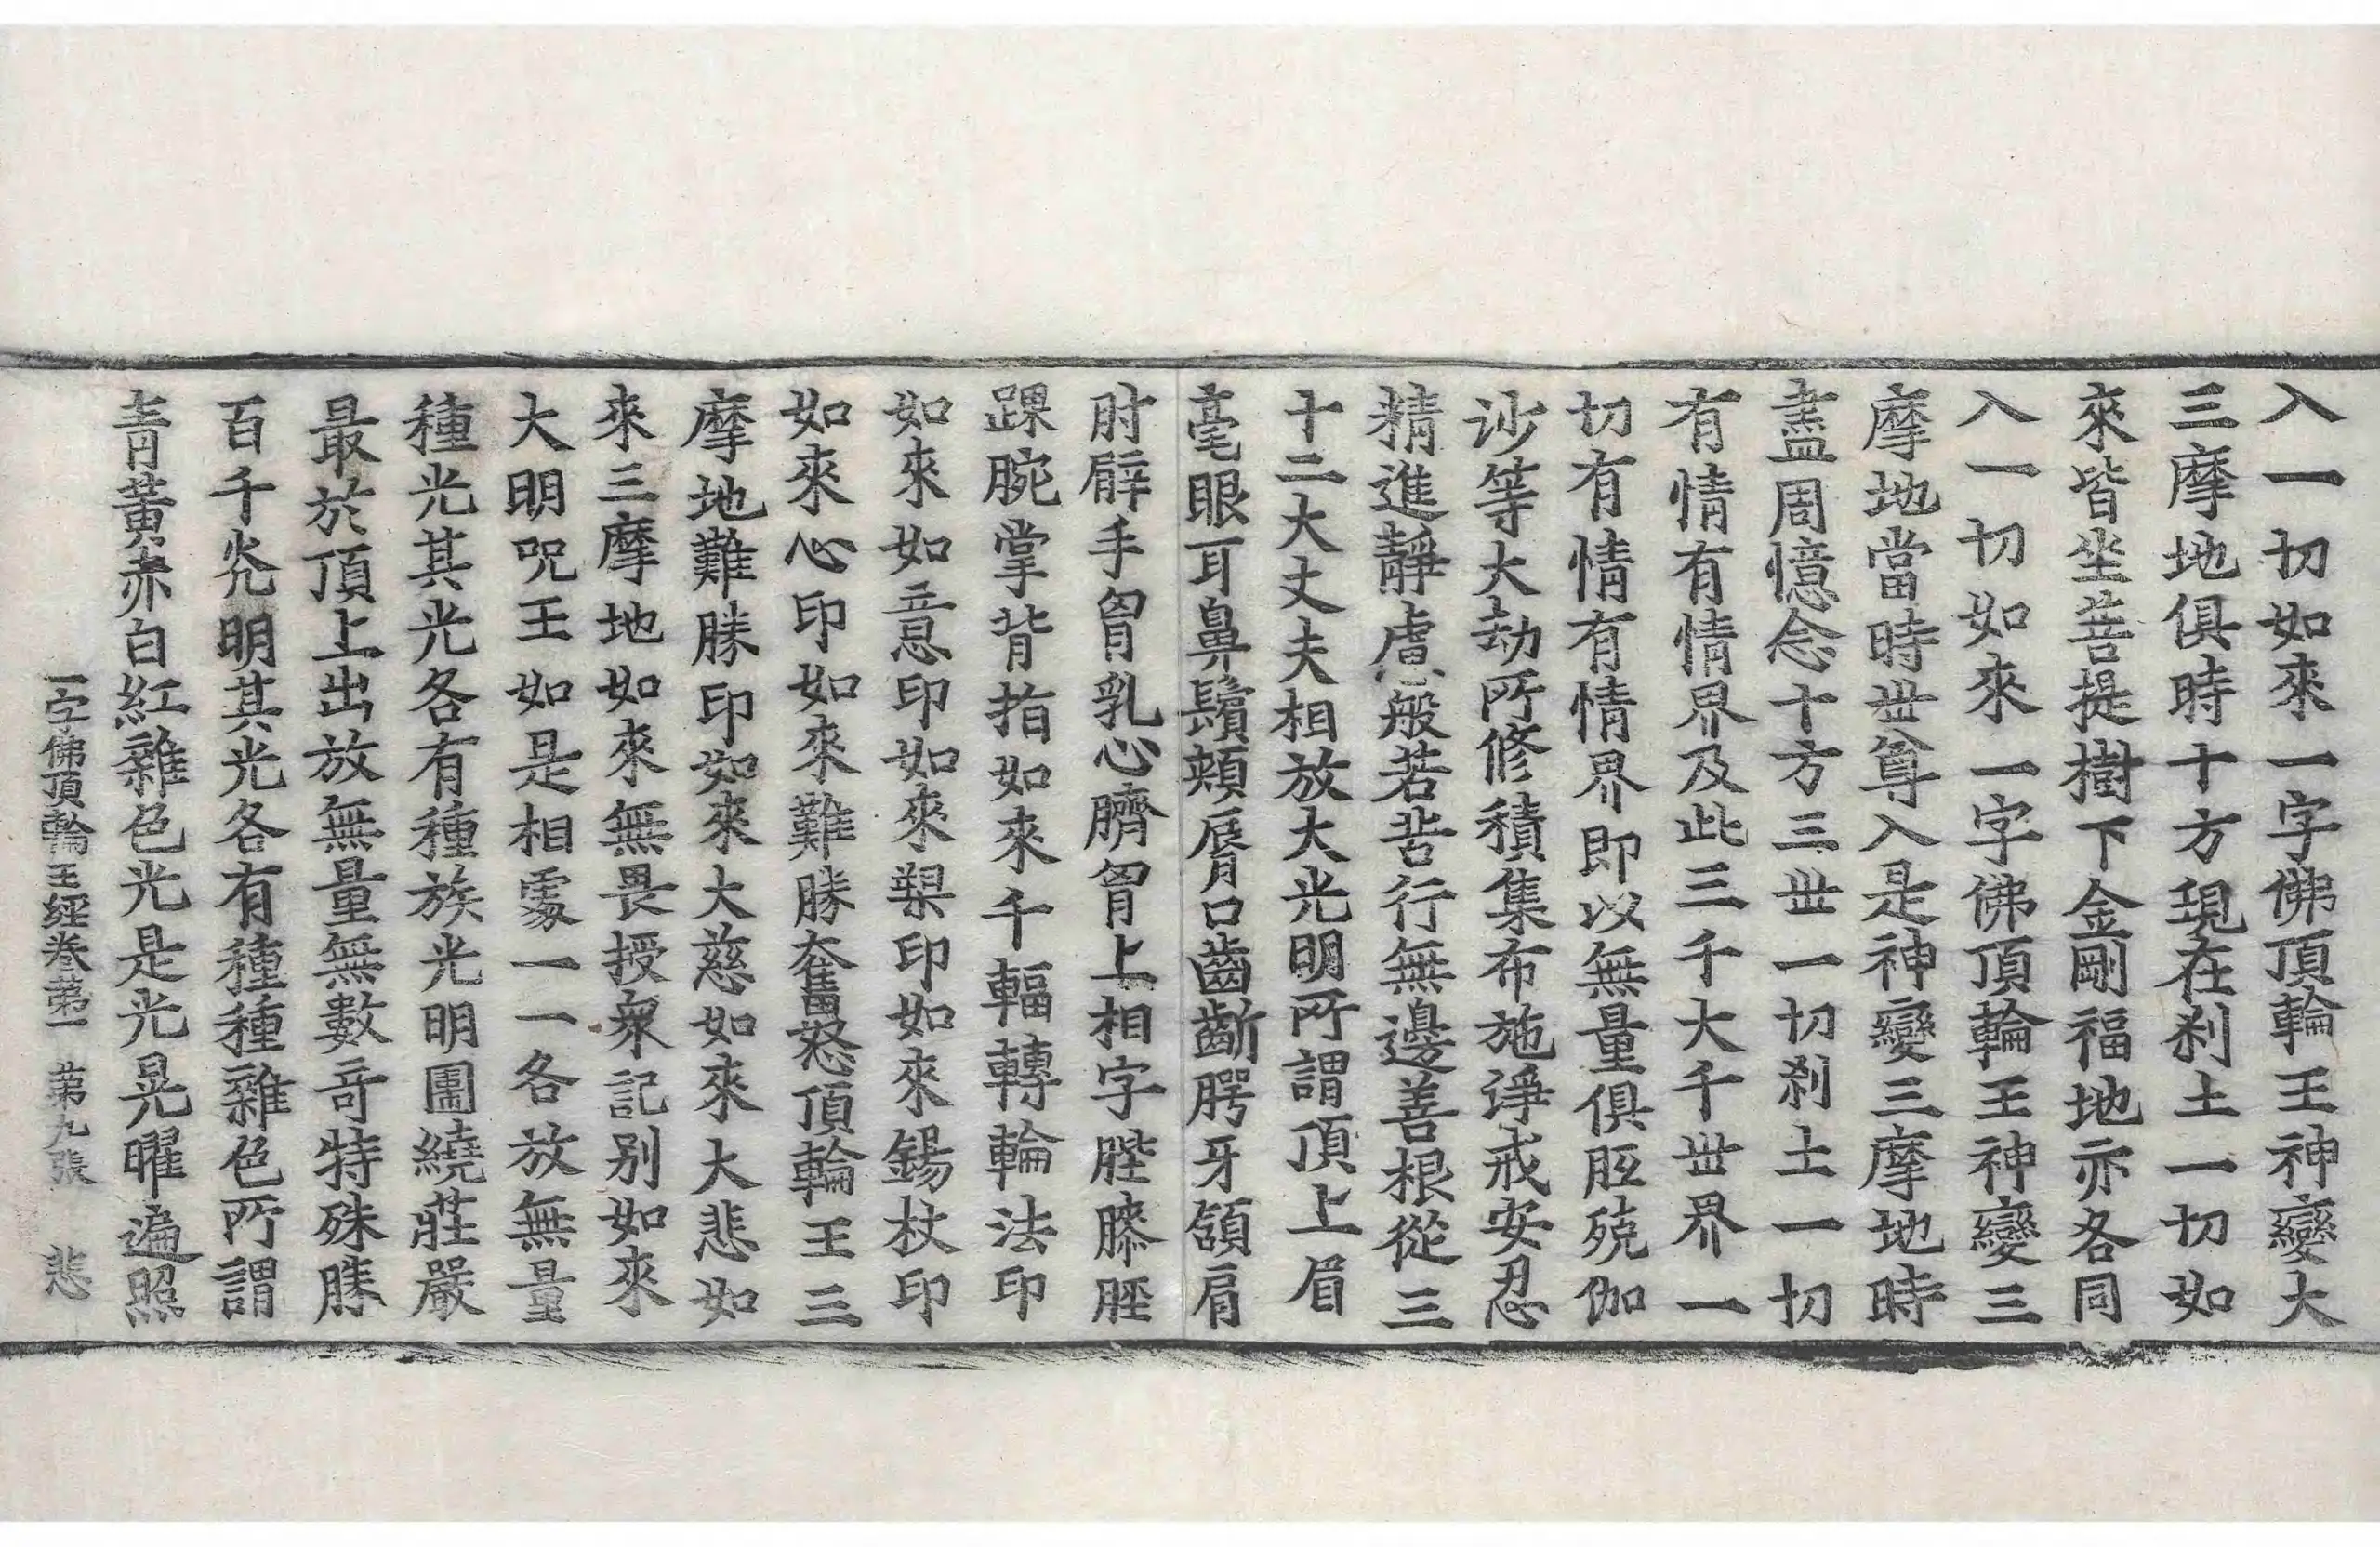 入一切如來一字佛頂輪王神變大
三摩地俱時十方現在刹土一切如
來皆坐菩提樹下金剛福地亦各同
入一切如來一字佛頂輪王神變三
摩地當時世尊入是神變三摩地時
盡周憶念十方三世一切刹土一切
有情有情界及此三千大千世界一
切有情有情界即以無量俱胝殑伽
沙等大劫所修積集布施諍戒安忍
精進靜慮般若苦行無邊善根從三
十二大丈夫相放大光明所謂頂上眉
毫眼耳鼻鬚頰脣口齒齗腭牙頷肩
肘臂手胷乳心臍胷上相字髀膝脛
踝腕掌背指如來千輻轉輪法印
如來如意印如來槊印如來錫杖印
如來心印如來難勝奮怒頂輪王三
摩地難勝印如來大慈如來大悲如
來三摩地如來無畏授衆記别如來
大明呪王如是相處一一各放無量
種光其光各有種族光明圍繞莊嚴
最於頂上出放無量無數奇特殊勝
百千光明其光各有種種雜色所謂
青黃赤白紅雜色光是光晃曜遍照
一字佛頂輪王經卷苐一 苐九張 悲